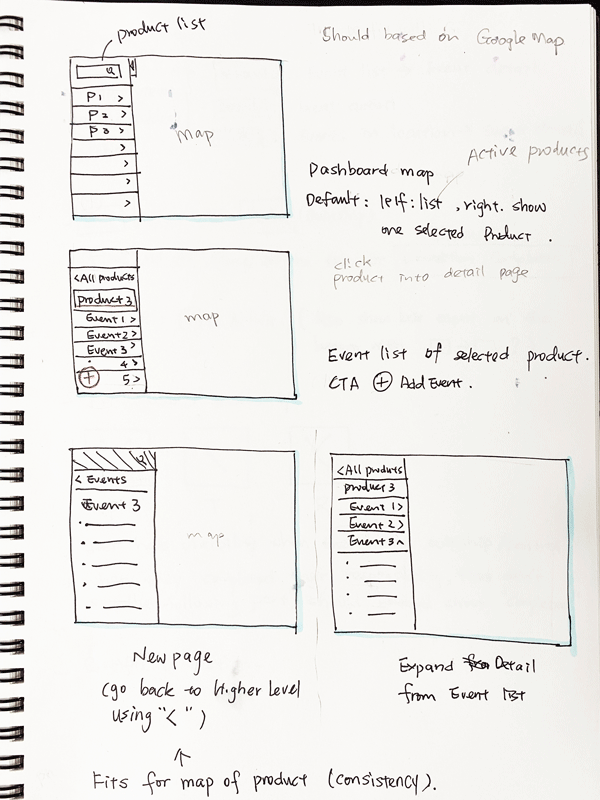 product list
Should based on Google Map
P1 >
P2 >
P3 >
>
>
>
>
Map
Active products
Dashboard map
Default: lelf: list, right. show
one selected Product.
click
product into detail page
<All products
product 3
Event 1 >
Event 2 >
Event 3 >
4 >
+ 5 >
map
Event list of selected product.
CTA + Add Event.
< Events
Event 3
map
<All products
product 3
Event 1 >
Event 2 >
Event 3 ^
New page
(go back to Higher Level
using "<")
Expand Detail
from Event list
Fits for map of product (consistency).